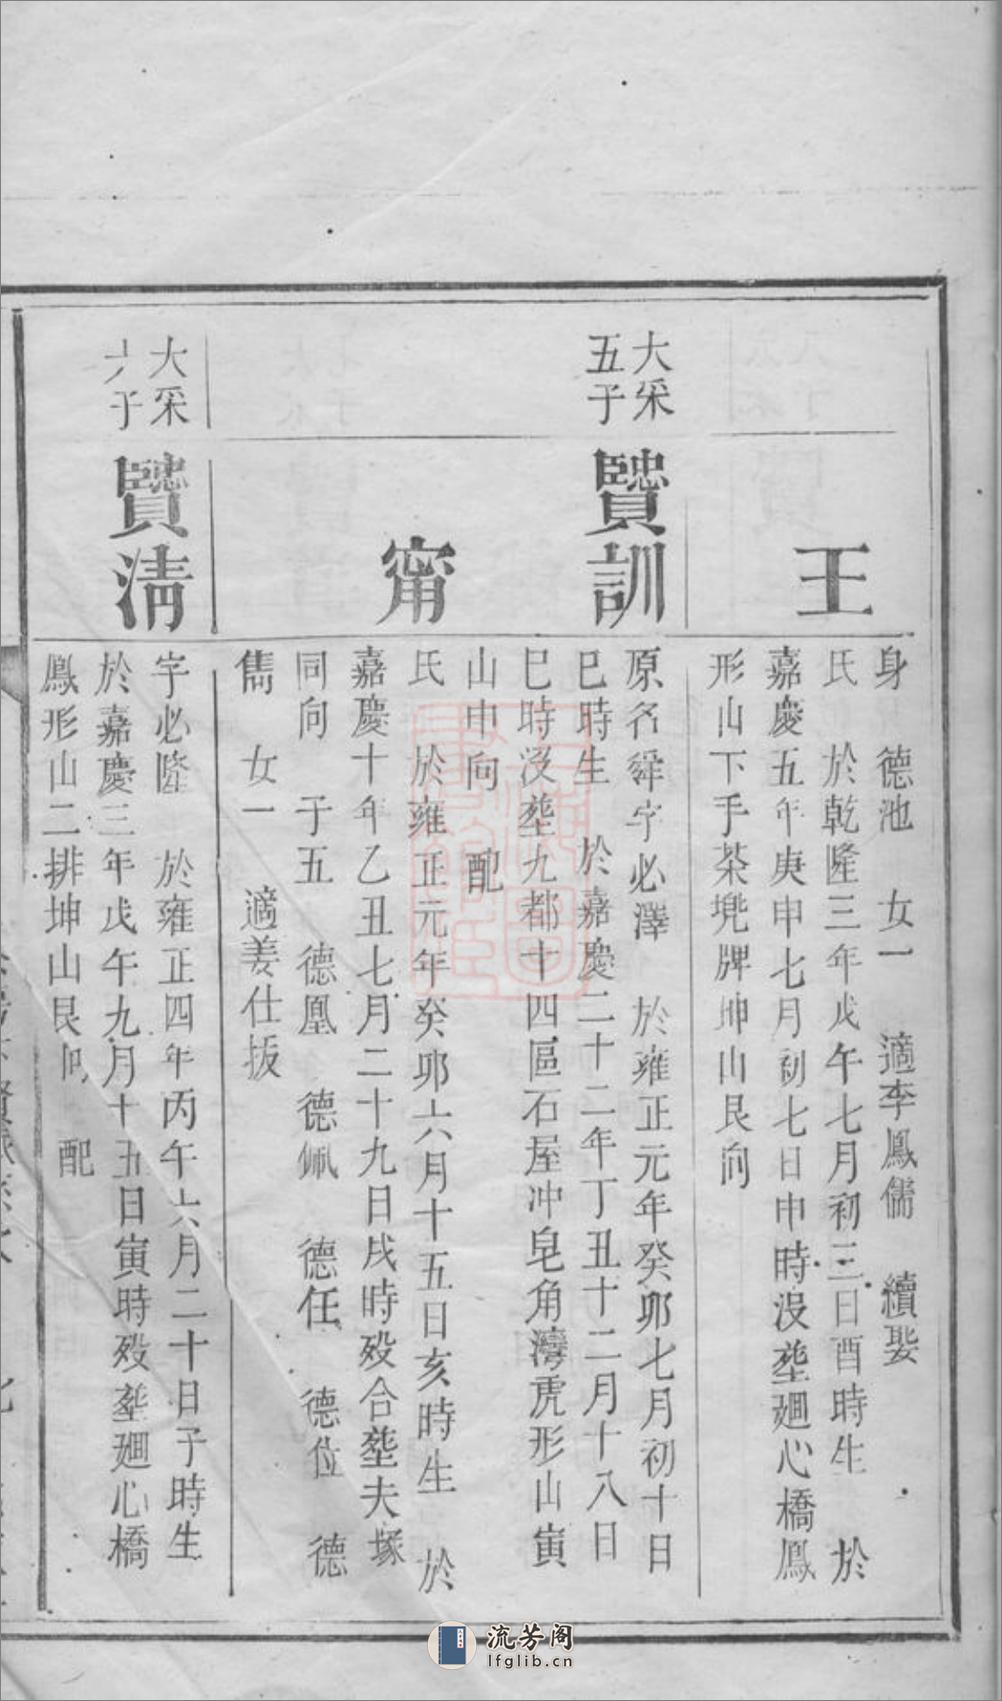 王
身 德池 女一 適李鳳儒 續娶
氏 於乾隆三年戊午七月初三日酉時生 於
嘉慶五年庚申七月初七日申時没塟廻心橋鳳
形山下手茶兠牌坤山艮向
大采
五子
贒訓
原名舜字必澤 於雍正元年癸卯七月初十日
巳時生 於嘉慶二十二年丁丑十二月十八日
巳時没塟九都十四區石屋冲皂角灣虎形山寅
山申向 配
甯
氏 於雍正元年癸卯六月十五日亥時生 於
嘉慶十年乙丑七月二十九日戌時殁合塟夫塚
同向 子五 德凰 德佩 德任 德位 德
雋 女一 適姜仕拔
大采
六子
贒淸
字必隆 於雍正四年丙午六月二十日子時生
於嘉慶三年戊午九月十五日寅時殁塟廻心橋
鳳形山二排坤山艮向 配
流芳阁
lfglib.cn